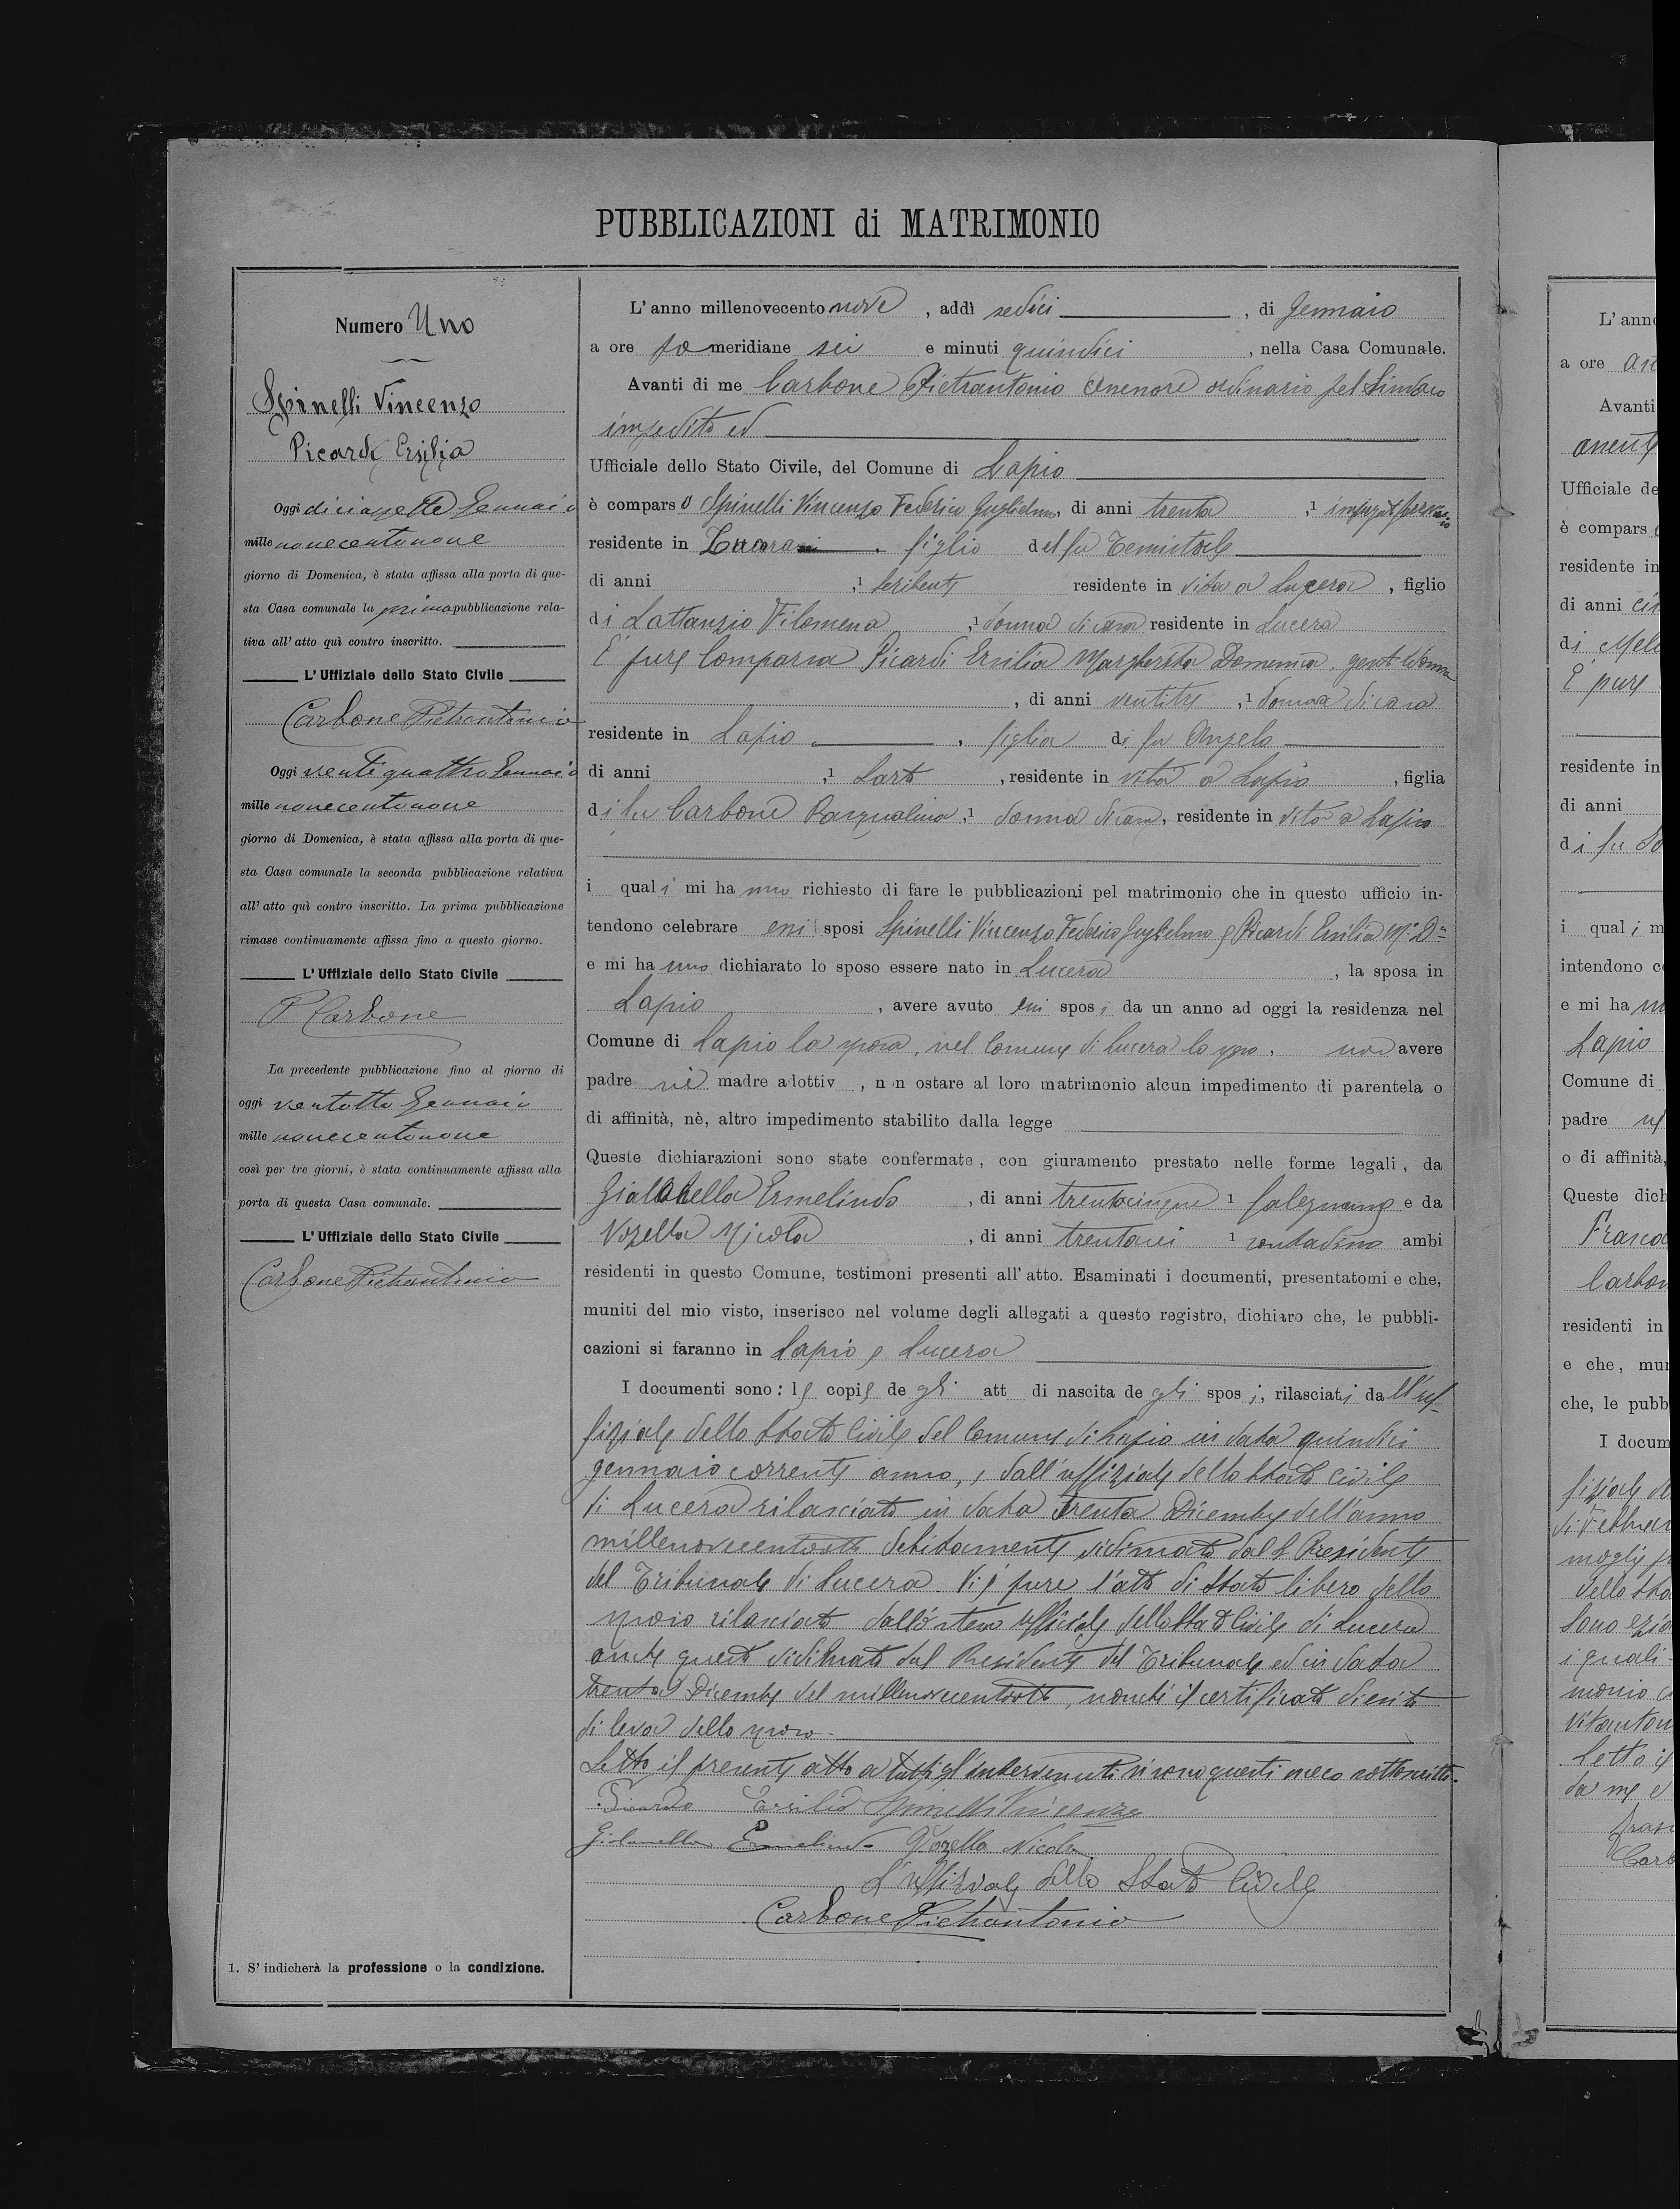 PUBBLICAZIONI di MATRIMONIO
Numero Uno
Spinelli Vincenzo
Picardi Ersilia
Oggi diciassette Gennaio
mille novecentonove
giorno di Domenica, è stata affissa alla porta di que-
sta Casa comunale la prima pubblicazione rela-
tiva all' atto quì contro inscritto.
L' Uffiziale dello Stato Civile
Carbone Pietrantonio
Oggi venti quattro Gennaio
mille novecentonove
giorno di Domenica, è stata affissa alla porta di que-
sta Casa comunale la seconda pubblicazione relativa
all' atto quì contro inscritto. La prima pubblicazione
rimase continuamente affissa fino a questo giorno.
L' Uffiziale dello Stato Civile
P Carbone
La precedente pubblicazione fino al giorno di
oggi ventotto Gennaio
mille novecentonove
così per tre giorni, è stata continuamente affissa alla
porta di questa Casa comunale.
L' Uffiziale dello Stato Civile
Carbone Pietrantonio
1. S' indicherà la professione o la condizione.
L' anno millenovecento nove, addì sedici, di Gennaio
a ore po meridiane sei e minuti quindici, nella Casa Comunale.
Avanti di me Carbone Pietrantonio Assessore ordinario pel Sindaco
impedito ed
Ufficiale dello Stato Civile, del Comune di Lapio
è comparso Spinelli Vincenzo Federico Guglielmo, di anni trenta, 1
residente in figlio del fu Temistocle
di anni ,1 scribente residente in vita a Lucera, figlio
di Lattanzio Filomena ,1 donna di casa residente in Lucera
È pure Comparsa Picardi Ersilia Margherita Domenica, gentildonna
, di anni ventitre ,1 donna di casa
residente in Lapio, figlia di fu Angelo
di anni ,1 Sarto, residente in vita a Lapio, figlia
di fu Carbone Pasqualina,1 donna di casa, residente in vita a Lapio
i quali mi hanno richiesto di fare le pubblicazioni pel matrimonio che in questo ufficio in-
tendono celebrare essi sposi Spinelli Vincenzo Federico Guglielmo e Picardi Ersilia Mª Dª
e mi hanno dichiarato lo sposo essere nato in Lucera, la sposa in
Lapio, avere avuto essi sposi da un anno ad oggi la residenza nel
Comune di Lapio la sposa, nel Comune di Lucera lo sposo, non avere
padre nè madre adottiv , non ostare al loro matrimonio alcun impedimento di parentela o
di affinità, nè, altro impedimento stabilito dalla legge
Queste dichiarazioni sono state confermate, con giuramento prestato nelle forme legali, da
Ermelindo, di anni trentacinque 1 falegname e da
Vozella Nicola, di anni trentasei 1 contadino ambi
residenti in questo Comune, testimoni presenti all' atto. Esaminati i documenti, presentatomi e che,
muniti del mio visto, inserisco nel volume degli allegati a questo registro, dichiaro che, le pubbli-
cazioni si faranno in Lapio e Lucera
I documenti sono: le copie degli att di nascita degli sposi, rilasciati dall'uf-
fiziale dello Stato Civile del Comune di Lapio in data quindici
gennaio corrente anno, e dall'uffiziale dello Stato Civile
di Lucera rilasciato in data trenta Dicembre dell'anno
millenovecentootto debitamente vidimato dal S. Presidente
del Tribunale di Lucera. Vi è pure l'atto di Stato libero dello
sposo rilasciato dallo stesso Ufficiale dello Stato Civile di Lucera
anche questo vidimato dal Presidente del Tribunale ed in data
trenta Dicembre del millenovecentootto, nonché il certificato di esito
di leva dello sposo.
Letto il presente atto a tutti gl'intervenuti si sono questi meco sottoscritti.
Ersilia Spinelli Vincenzo
Ermelindo Vozella Nicola
L'Uffiziale dello Stato Civile
Carbone Pietrantonio
L' anno
a ore
Avanti
Ufficiale de
è compars
residente in
di anni
di Mele
È pure
residente in
di anni
di fu
i quali m
intendono c
e mi ha
Lapio
Comune di
padre
o di affinità,
Queste dich
residenti in
e che, mu
che, le pubb
I docum